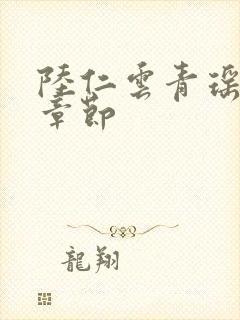 陸仁雲青瑶
章節
龍翔